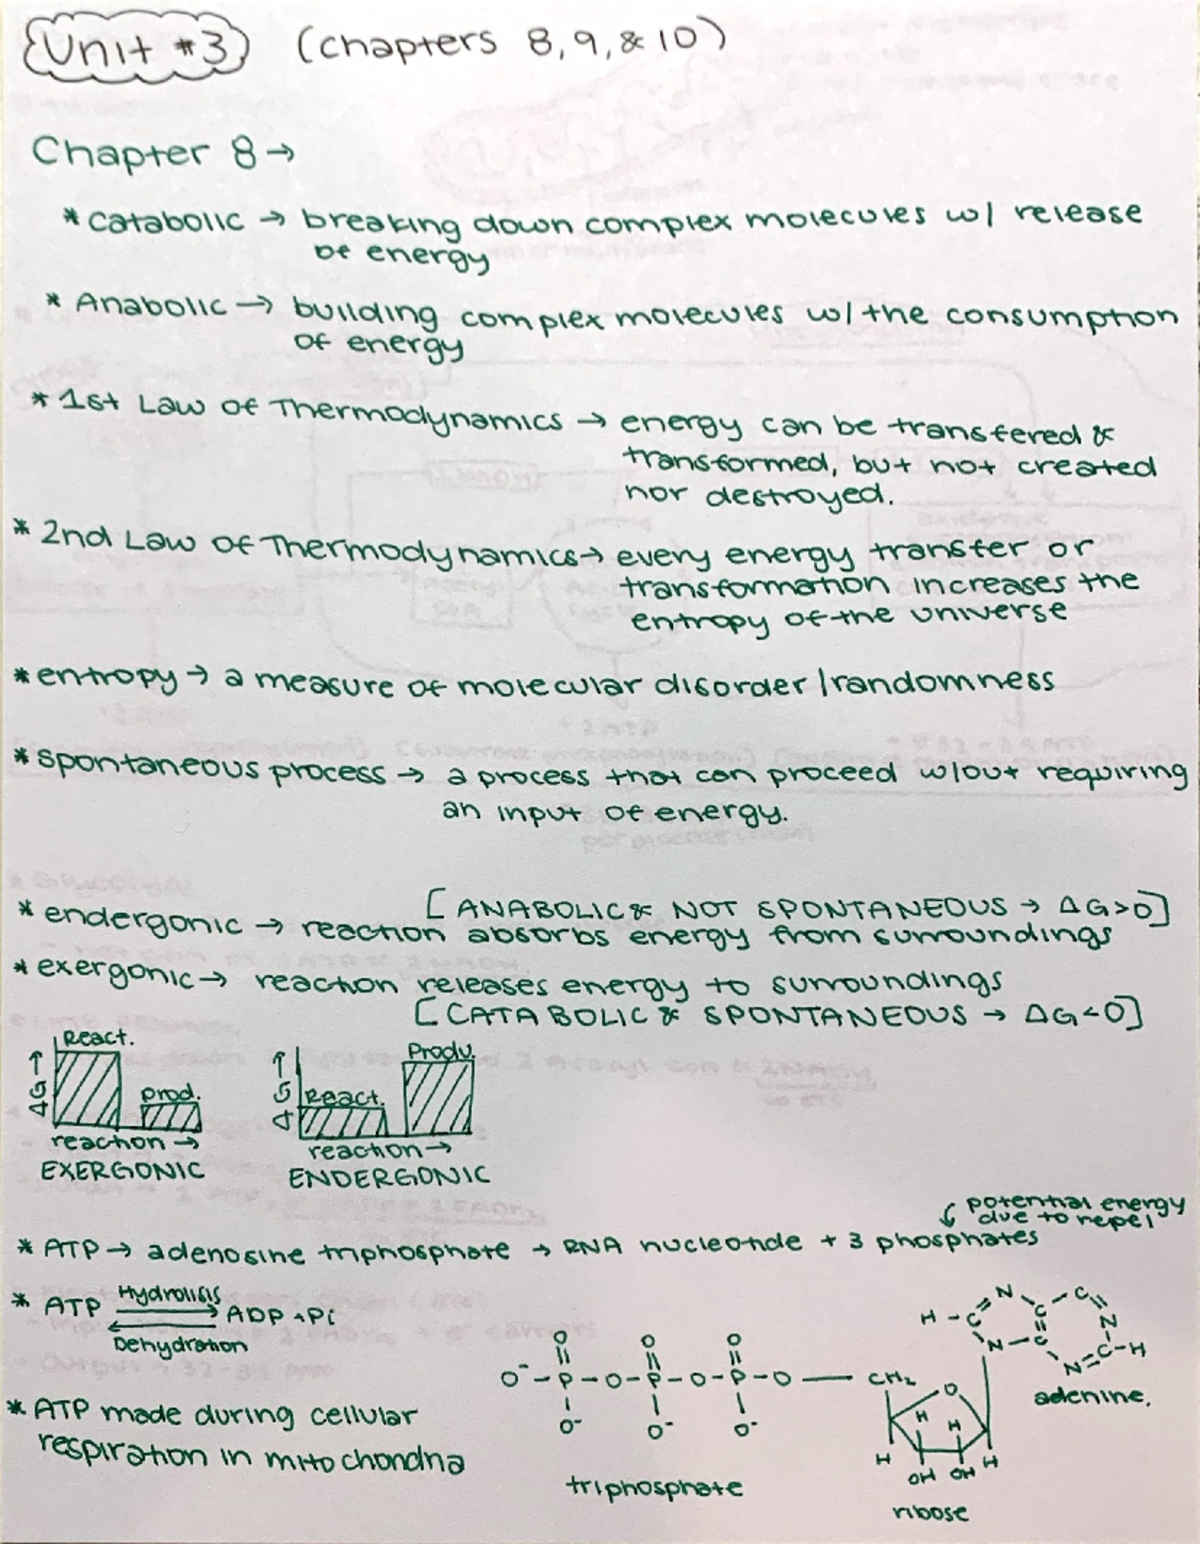 Unit #3 (chapters 8, 9, & 10)
Chapter 8→
* catabolic → breaking down complex molecules w/ release
of energy
* Anabolic → building complex molecules w/ the consumption
of energy
* 1st Law of Thermodynamics → energy can be transfered &
transformed, but not created
nor destroyed.
* 2nd Law of Thermodynamics → every energy transfer or
transformation increases the
entropy of the universe
* entropy → a measure of molecular disorder/randomness
* spontaneous process → a process that can proceed w/out requiring
an input of energy.
[ANABOLIC & NOT SPONTANEOUS → ΔG>0]
* endergonic → reaction absorbs energy from surroundings
* exergonic → reaction releases energy to surroundings
[CATABOLIC & SPONTANEOUS → ΔG<0]
React. Produ.
ΔG → Prod. ΔG → React.
reaction → reaction →
EXERGONIC ENDERGONIC
potential energy
due to repel
* ATP → adenosine triphosphate → RNA nucleotide + 3 phosphates
* ATP Hydrolisis ADP + Pi
Dehydration
* ATP made during cellular
respiration in mitochondria
O O O
O⁻-P-O-P-O-P-O — CH₂ O
O⁻ O⁻ O⁻
H H H H
OH OH
triphosphate
ribose
H-C N C C N C N C-H N
adenine.